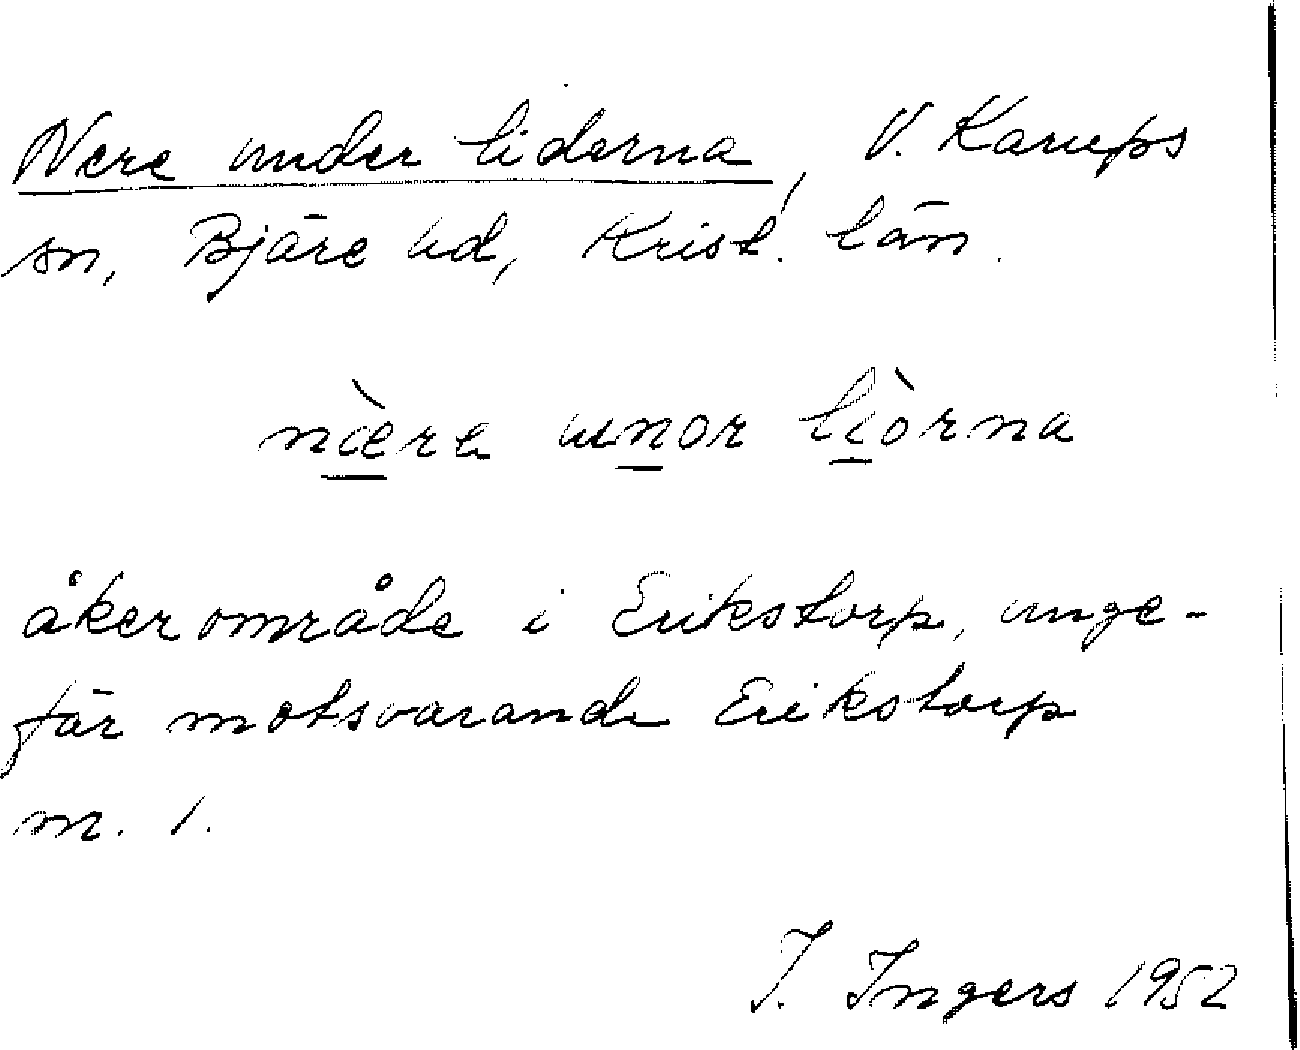 Nere under liderna, V. Karups
sn, Bjäre hd, Krist. län.
næ̀re unor liòrna
åkerområde i Erikstorp, unge-
fär motsvarande Erikstorp
m. 1.
I. Ingers 1952